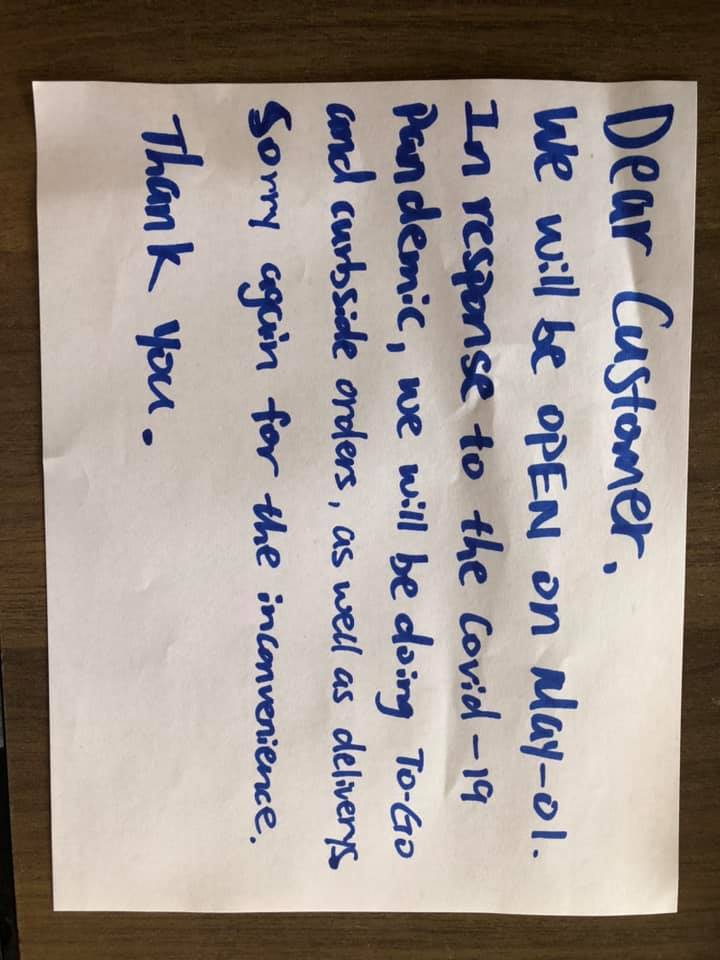 Dear Customer,
We will be OPEN on May-01.
In response to the Covid-19
Pandemic, we will be doing To-Go
and curbside orders, as well as deliverys
Sorry again for the inconvenience.
Thank you.